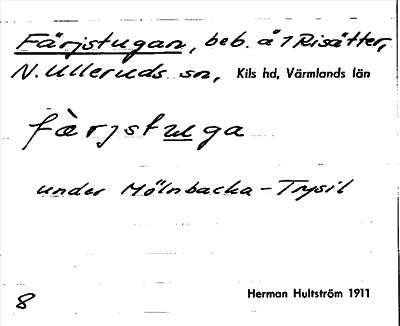 Färjstugan, beb. å 1 Risätter,
N. Ulleruds sn, Kils hd, Värmlands län
fàrjstuga
under Mölnbacka-Trysil
8 Herman Hultström 1911